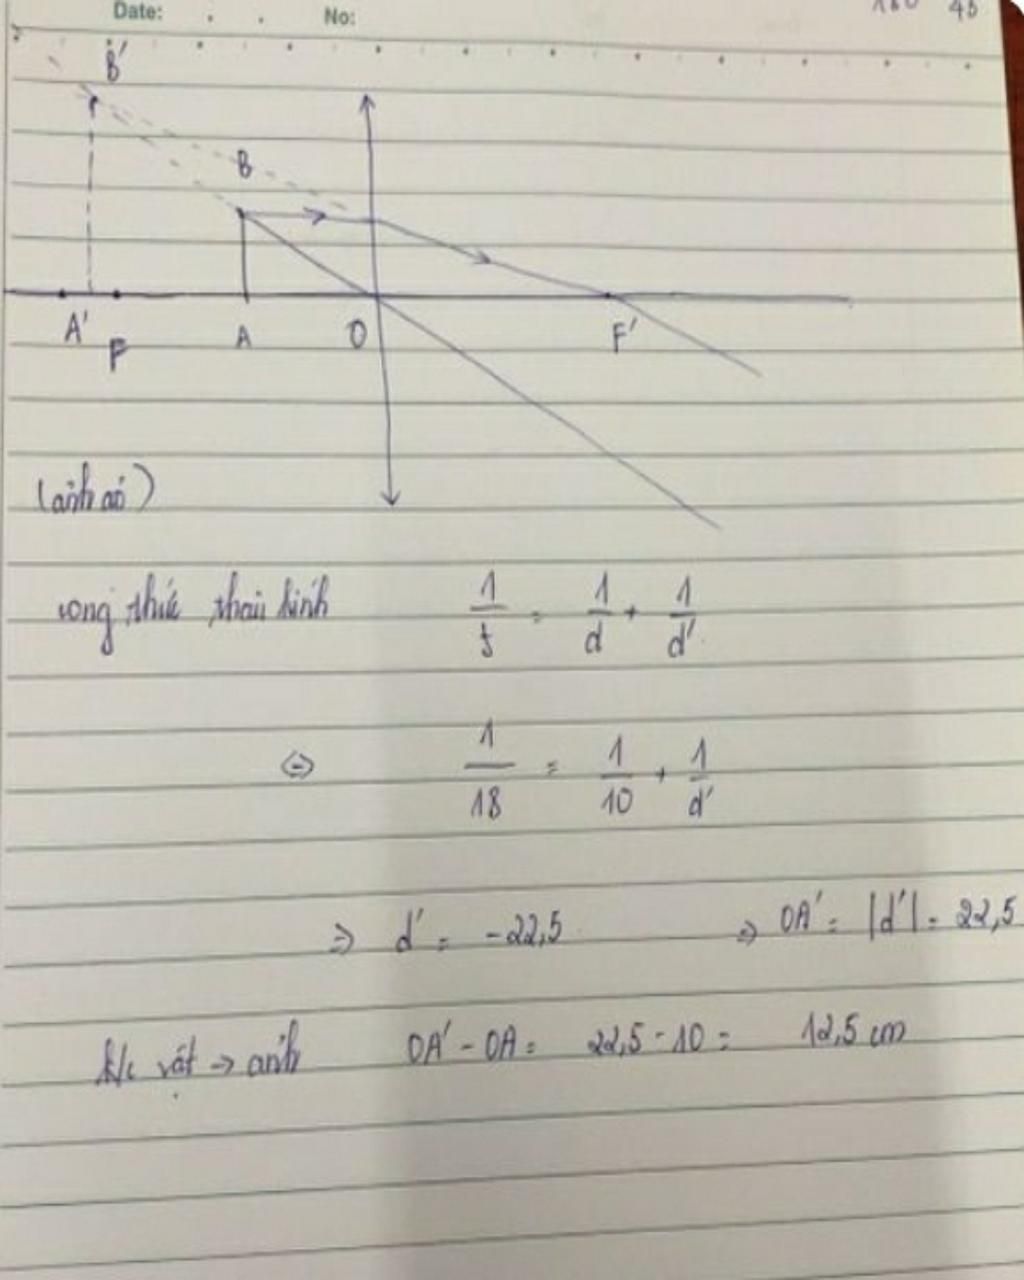 Date: . . No: 180 45
B'
B
A' F A O F'
(ảnh ảo)
công thức thấu kính 1/f = 1/d + 1/d'
⇔ 1/18 = 1/10 + 1/d'
⇒ d' = -22,5 ⇒ OA' = |d'| = 22,5
k/c vật → ảnh OA' - OA = 22,5 - 10 = 12,5 cm